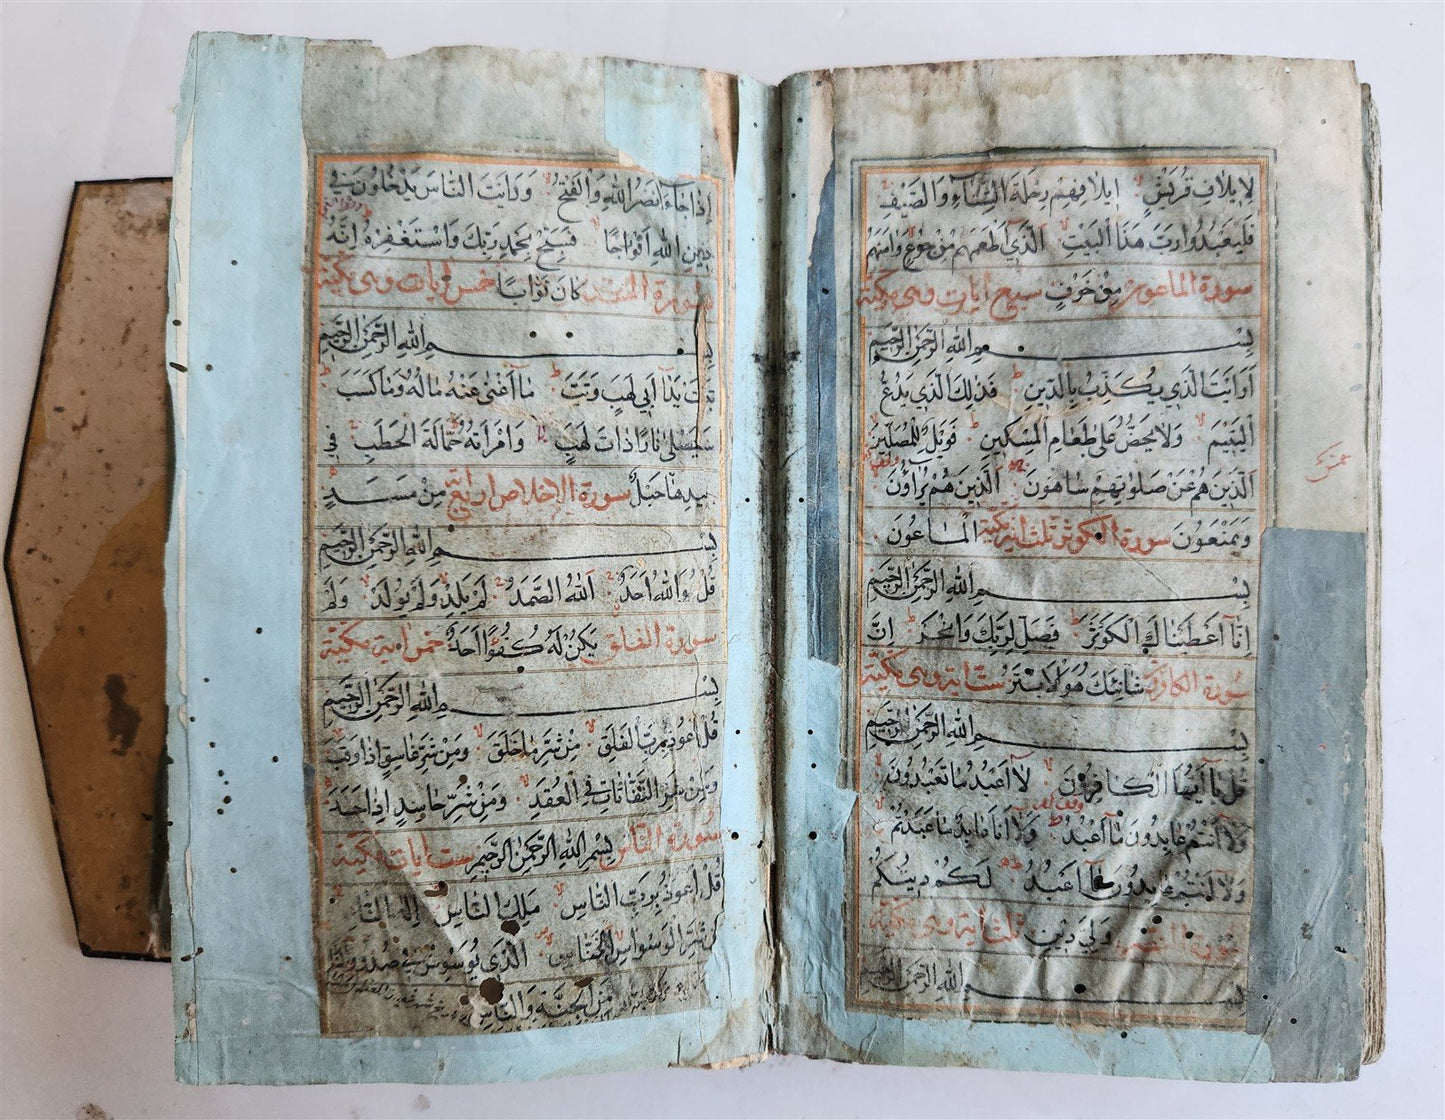 لِإِيلَافِ قُرَيْشٍ إِيلَافِهِمْ رِحْلَةَ الشِّتَآءِ وَالصَّيْفِ
فَلْيَعْبُدُوا رَبَّ هَذَا الْبَيْتِ الَّذِي أَطْعَمَهُمْ مِنْ جُوعٍ وَآمَنَهُمْ
مِنْ خَوْفٍ سورة الماعون سبع آيات وهي مكية
بِسْمِ اللهِ الرَّحْمَنِ الرَّحِيمِ
أَرَأَيْتَ الَّذِي يُكَذِّبُ بِالدِّينِ فَذَلِكَ الَّذِي يَدُعُّ
الْيَتِيمَ وَلَا يَحُضُّ عَلَى طَعَامِ الْمِسْكِينِ فَوَيْلٌ لِلْمُصَلِّينَ
الَّذِينَ هُمْ عَنْ صَلَوتِهِمْ سَاهُونَ الَّذِينَ هُمْ يُرَاؤُنَ
وَيَمْنَعُونَ الْمَاعُونَ سورة الكوثر ثلث آية مكية
بِسْمِ اللهِ الرَّحْمَنِ الرَّحِيمِ
إِنَّا أَعْطَيْنَاكَ الْكَوْثَرَ فَصَلِّ لِرَبِّكَ وَانْحَرْ إِنَّ
شَانِئَكَ هُوَ الْأَبْتَرُ سورة الكافرون ست آية وهي مكية
بِسْمِ اللهِ الرَّحْمَنِ الرَّحِيمِ
قُلْ يَا أَيُّهَا الْكَافِرُونَ لَا أَعْبُدُ مَا تَعْبُدُونَ
وَلَا أَنْتُمْ عَابِدُونَ مَا أَعْبُدُ وَلَا أَنَا عَابِدٌ مَا عَبَدْتُمْ
وَلَا أَنْتُمْ عَابِدُونَ مَا أَعْبُدُ لَكُمْ دِينُكُمْ
وَلِيَ دِينِ سورة النصر ثلث آية وهي مكية
بِسْمِ اللهِ الرَّحْمَنِ الرَّحِيمِ
إِذَا جَاءَ نَصْرُ اللهِ وَالْفَتْحُ وَرَأَيْتَ النَّاسَ يَدْخُلُونَ فِي
دِينِ اللهِ أَفْوَاجًا فَسَبِّحْ بِحَمْدِ رَبِّكَ وَاسْتَغْفِرْهُ إِنَّهُ
كَانَ تَوَّابًا سورة خمس آيات وهي مكية
بِسْمِ اللهِ الرَّحْمَنِ الرَّحِيمِ
تَبَّتْ يَدَا أَبِي لَهَبٍ وَتَبَّ مَا أَغْنَى عَنْهُ مَالُهُ وَمَا كَسَبَ
سَيَصْلَى نَارًا ذَاتَ لَهَبٍ وَامْرَأَتُهُ حَمَّالَةَ الْحَطَبِ فِي
جِيدِهَا حَبْلٌ مِنْ مَسَدٍ سورة الإخلاص اربع
بِسْمِ اللهِ الرَّحْمَنِ الرَّحِيمِ
قُلْ هُوَ اللهُ أَحَدٌ اللهُ الصَّمَدُ لَمْ يَلِدْ وَلَمْ يُولَدْ وَلَمْ
يَكُنْ لَهُ كُفُوًا أَحَدٌ سورة الفلق خمس آية مكية
بِسْمِ اللهِ الرَّحْمَنِ الرَّحِيمِ
قُلْ أَعُوذُ بِرَبِّ الْفَلَقِ مِنْ شَرِّ مَا خَلَقَ وَمِنْ شَرِّ غَاسِقٍ إِذَا وَقَبَ
وَمِنْ شَرِّ النَّفَّاثَاتِ فِي الْعُقَدِ وَمِنْ شَرِّ حَاسِدٍ إِذَا حَسَدَ
سورة الناس بِسْمِ اللهِ الرَّحْمَنِ الرَّحِيمِ ست آيات مكية
قُلْ أَعُوذُ بِرَبِّ النَّاسِ مَلِكِ النَّاسِ إِلَهِ النَّاسِ
مِنْ شَرِّ الْوَسْوَاسِ الْخَنَّاسِ الَّذِي يُوَسْوِسُ فِي صُدُورِ النَّاسِ
مِنَ الْجِنَّةِ وَالنَّاسِ